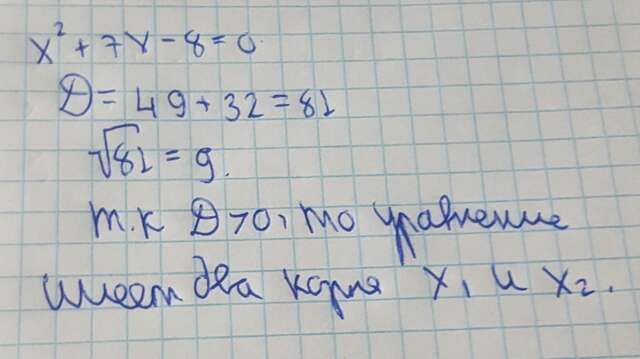 x² + 7x - 8 = 0
D = 49 + 32 = 81
√81 = 9.
т.к D > 0, то уравнение
имеет два корня x₁ и x₂.